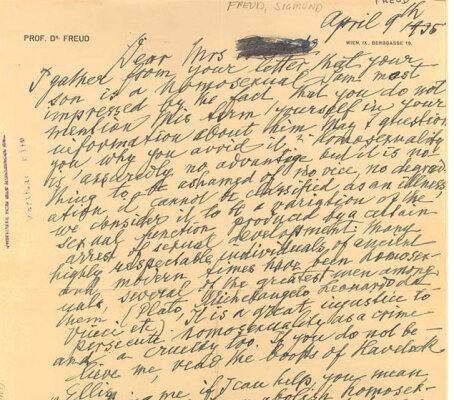 FREUD, SIGMUND
FREUD
April 9th 1935
PROF. DR. FREUD
WIEN, IX., BERGGASSE 19.
Dear Mrs
I gather from your letter, that your
son is a homosexual. I am most
impressed by the fact, that you do not
mention this term yourself in your
information about him. May I question
you why you avoid it? Homosexuality
is assuredly no advantage but it is no-
thing to be ashamed of, no vice, no degrad-
ation, it cannot be classified as an illness;
we consider it to be a variation of the
sexual function produced by a certain
arrest of sexual development. Many
highly respectable individuals of ancient
and modern times have been homosex-
uals, several of the greatest men among
them (Plato, Michelangelo, Leonardo da
Vinci etc). It is a great injustice to
persecute homosexuality as a crime
and a cruelty too. If you do not be-
lieve me, read the books of Havelock
Ellis. me if I can help, you mean
abolish homosex-